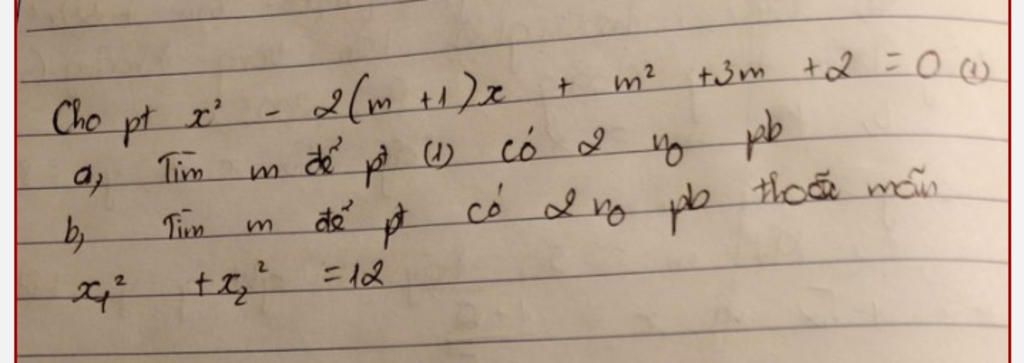 Cho pt x² - 2(m+1)x + m² +3m +2 = 0 (1)
a, Tìm m để pt (1) có 2 no pb
b, Tìm m để pt có 2 no pb thoả mãn
x₁² + x₂² = 12